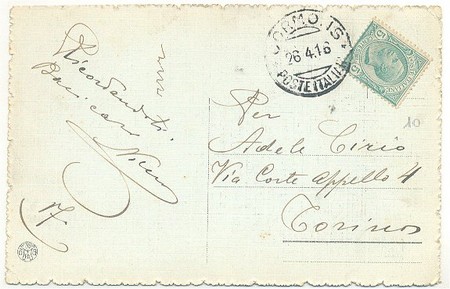 Ricordandoti
Baci cari
CORMONS
26.4.16
POSTE ITALIANE
5
5
10
Per
Adele Cirio
Via Corte Appello 4
Torino